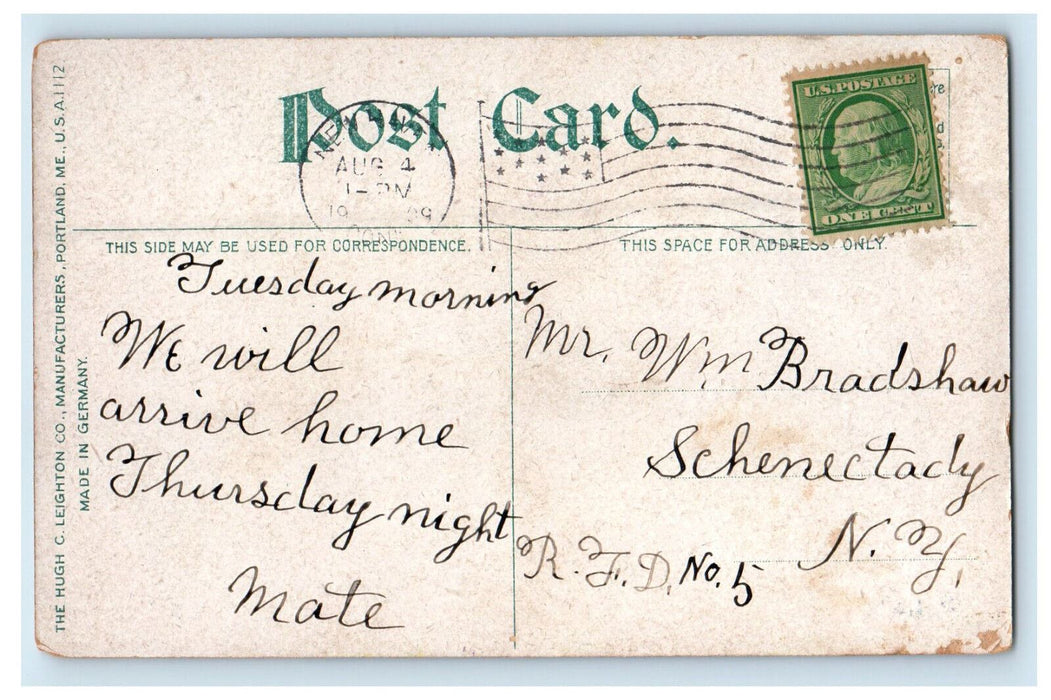 THE HUGH C. LEIGHTON CO., MANUFACTURERS, PORTLAND, ME., U.S.A. 1112
MADE IN GERMANY.
Post Card.
AUG 4
1-PM
19 09
CONN
U.S. POSTAGE
ONE CENT
THIS SIDE MAY BE USED FOR CORRESPONDENCE.
THIS SPACE FOR ADDRESS ONLY.
Tuesday morning
We will
arrive home
Thursday night
Mate
Mr. Wm Bradshaw
Schenectady
N. Y.
R. F. D. No. 5